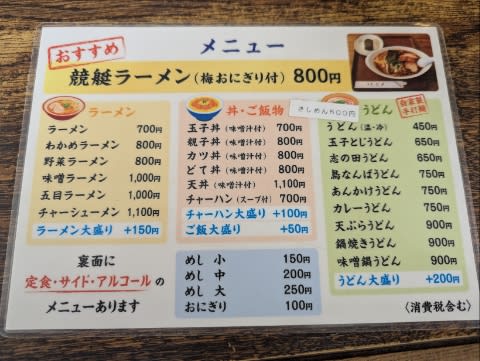 おすすめ
メニュー
競艇ラーメン(梅おにぎり付) 800円
ラーメン
ラーメン 700円
わかめラーメン 800円
野菜ラーメン 800円
味噌ラーメン 1,000円
五目ラーメン 1,000円
チャーシューメン 1,100円
ラーメン大盛り +150円
丼・ご飯物
玉子丼(味噌汁付) 700円
親子丼(味噌汁付) 800円
カツ丼(味噌汁付) 800円
どて丼(味噌汁付) 800円
天丼(味噌汁付) 1,100円
チャーハン(スープ付) 700円
チャーハン大盛り +100円
ご飯大盛り +50円
きしめん600円
うどん
自家製
手打麺
うどん(温・冷) 450円
玉子とじうどん 650円
志の田うどん 650円
鳥なんばうどん 750円
あんかけうどん 750円
カレーうどん 750円
天ぷらうどん 900円
鍋焼きうどん 900円
味噌鍋うどん 900円
うどん大盛り +200円
裏面に
定食・サイド・アルコールの
メニューあります
めし 小 150円
めし 中 200円
めし 大 250円
おにぎり 100円
〈消費税含む〉